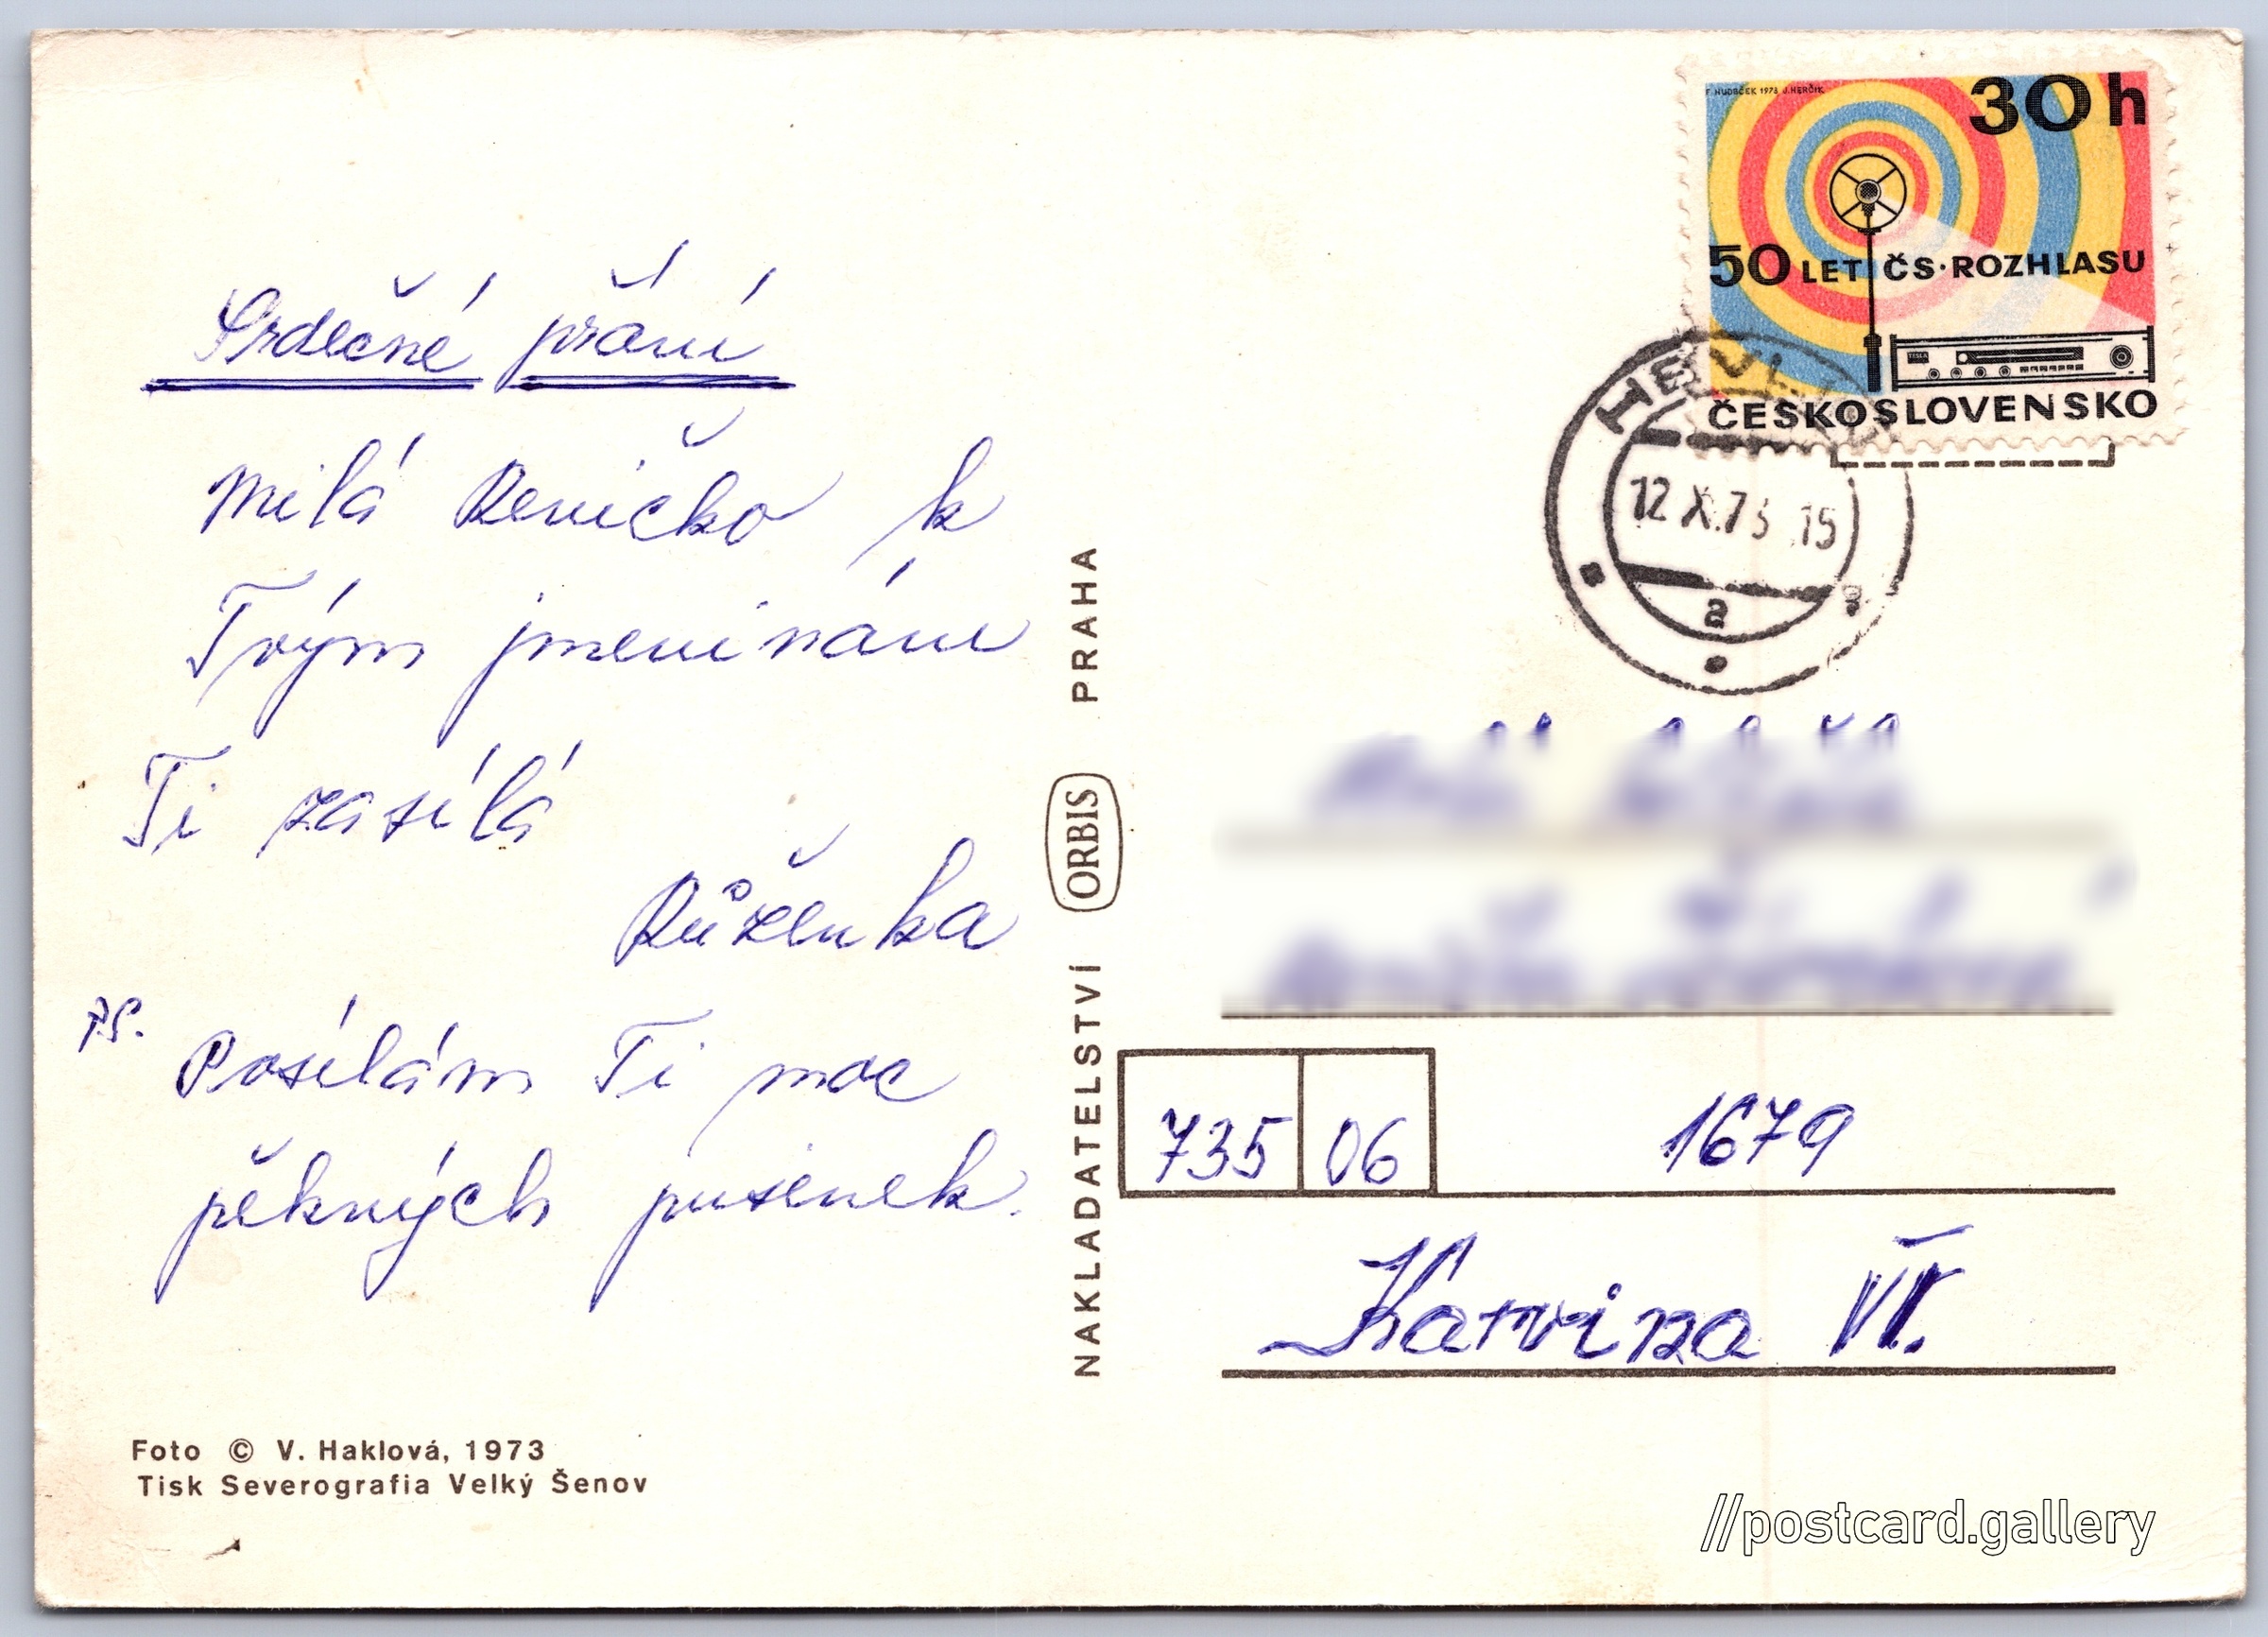 Srdečné přání
Milá Reničko k
Tvým jmeninám
Ti zasílá
Růženka
P.S.
Posílám Ti moc
pěkných pusinek.
Foto © V. Haklová, 1973
Tisk Severografia Velký Šenov
NAKLADATELSTVÍ ORBIS PRAHA
F. HUDEČEK 1973 J. HERČÍK
30h
50 LET ČS·ROZHLASU
TESLA
ČESKOSLOVENSKO
12.X.73.15
a
735 06 1679
Karviná VI.
//postcard.gallery